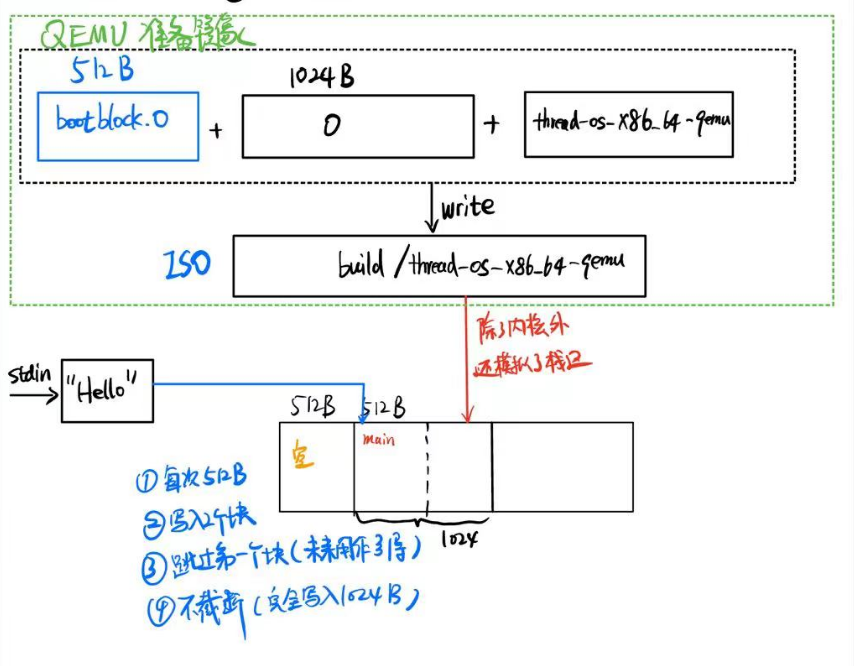 QEMU 准备镜像
512B
1024B
bootblock.o
+
0
+
thread-os-x86_64-qemu
write
ISO
build/thread-os-x86_64-qemu
除了内核外
还模拟了栈区
stdin
"Hello"
512B
512B
空
main
1024
①每次512B
②写入2个块
③跳过第一个块(未来用作引导)
④不截断(完全写入1024B)